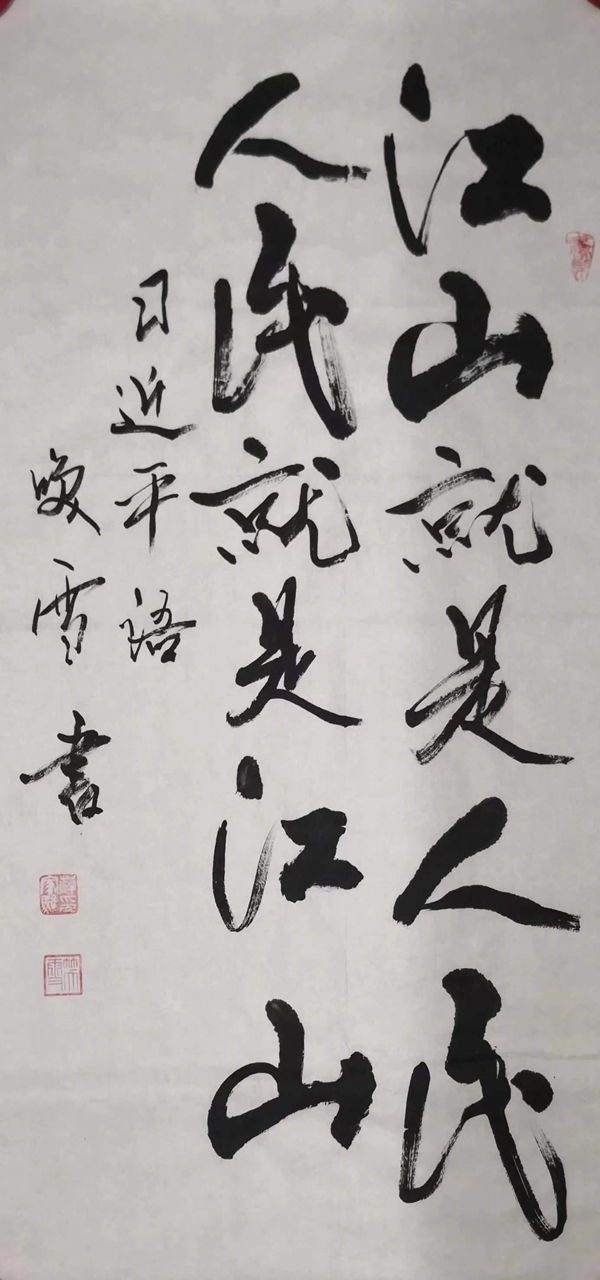 江山就是人民
人民就是江山
习近平语
雪书